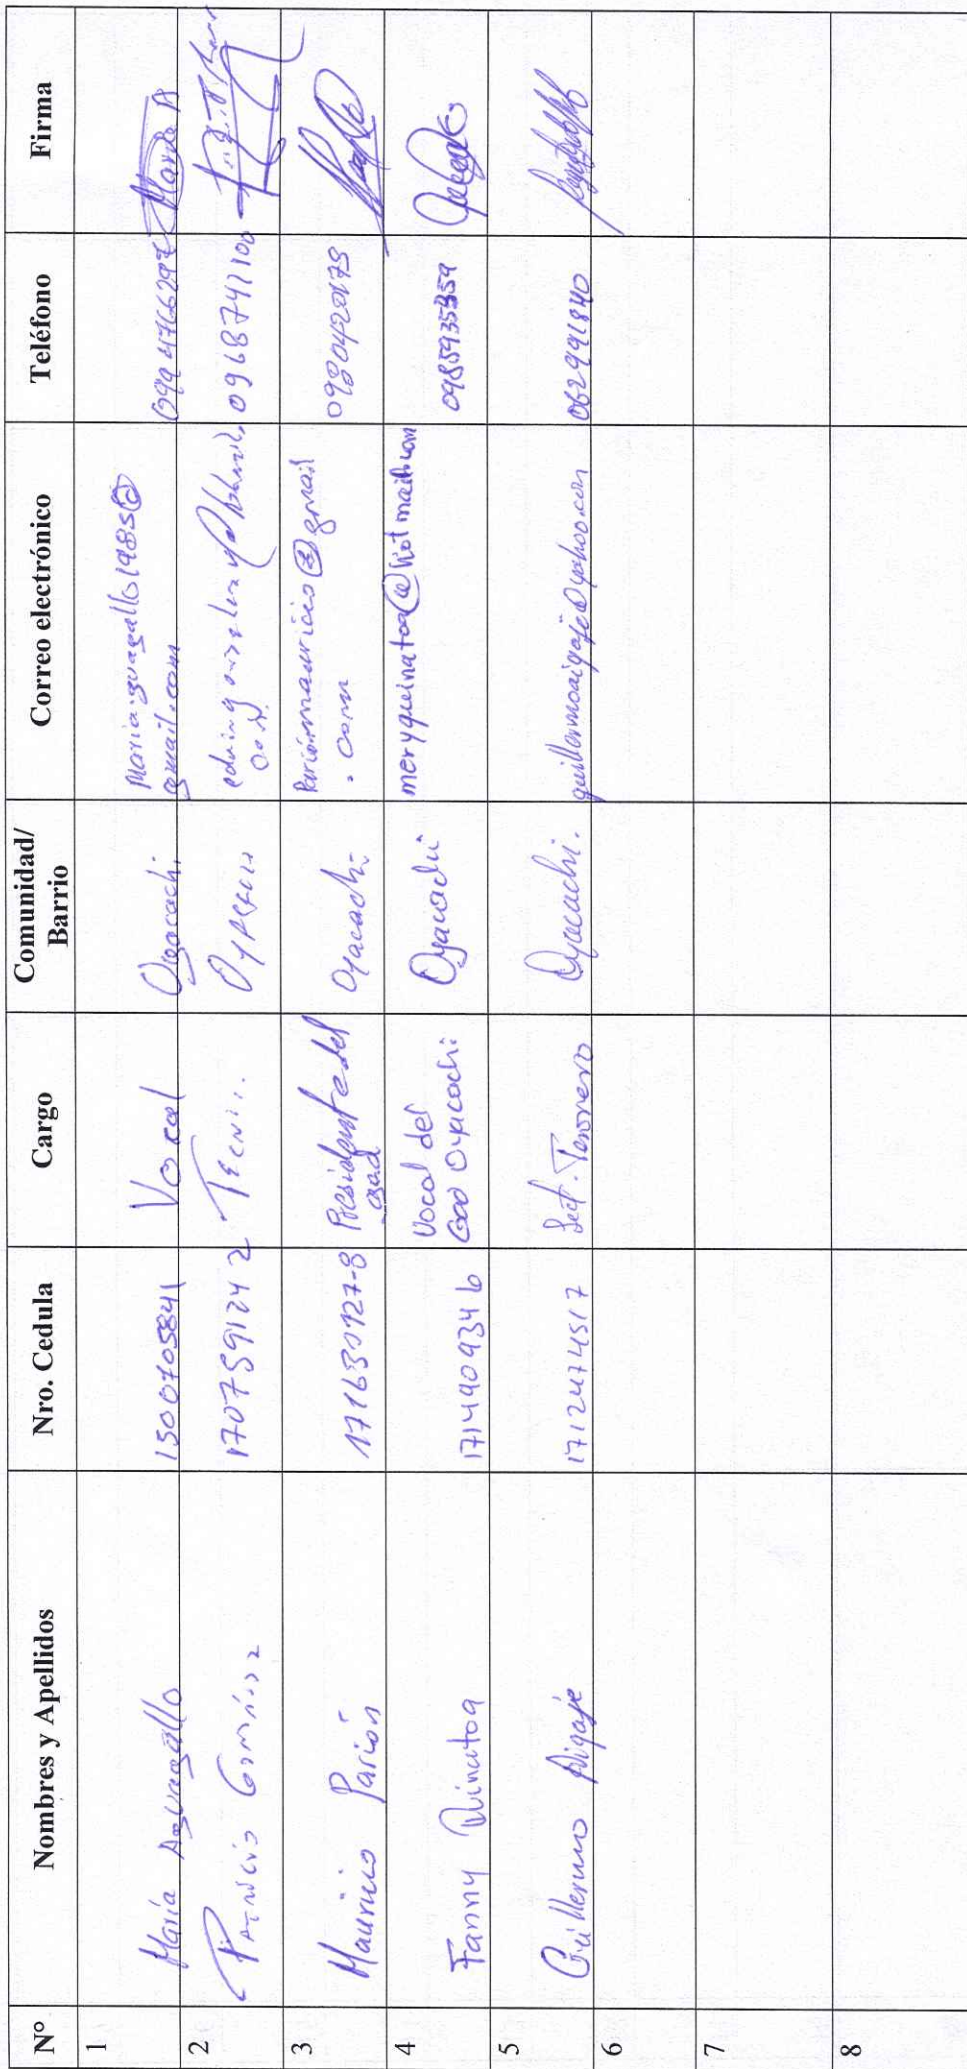 Nº Nombres y Apellidos Nro. Cedula Cargo Comunidad/ Barrio Correo electrónico Teléfono Firma
1 María Aguagallo 1500705841 Vocal Oyacachi. Maria.guagallo1985@
gmail.com María A
2 Patricio 1707591242 Tecni.. 0968741100
3 Mauricio Parión Presidente del
gad Oyacachi parionmauricio@gmail
.com 0980420173
4 Fanny Quinatoa 1714909346 Vocal del
Gad Oyacachi Oyacachi meryquinatoa@hotmail.com 0985935359
5 Guillermo Aigaje 1712474517 Sect. Tesorero Oyacachi. guillermoaigaje@yahoo.com 062991840
6
7
8